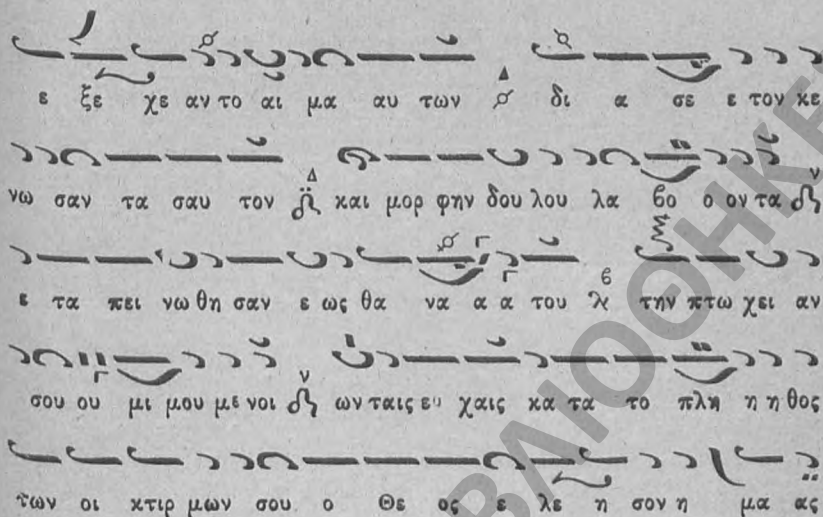 ε ξε χε αν το αι μα αυ των Δ δι α σε ε τον κε
νω σαν τα σαυ τον Δ και μορ φην δου λου λα βο ο ον τα ν
ε τα πει νω θη σαν ε ως θα να α α του β την πτω χει αν
σου ου μι μου με νοι ν ων ταις ευ χαις κα τα το πλη η η θος
των οι κτιρ μων σου ο Θε ος ε λε η σον η μα ας
ΒΛΙΟΘΗΚΕ